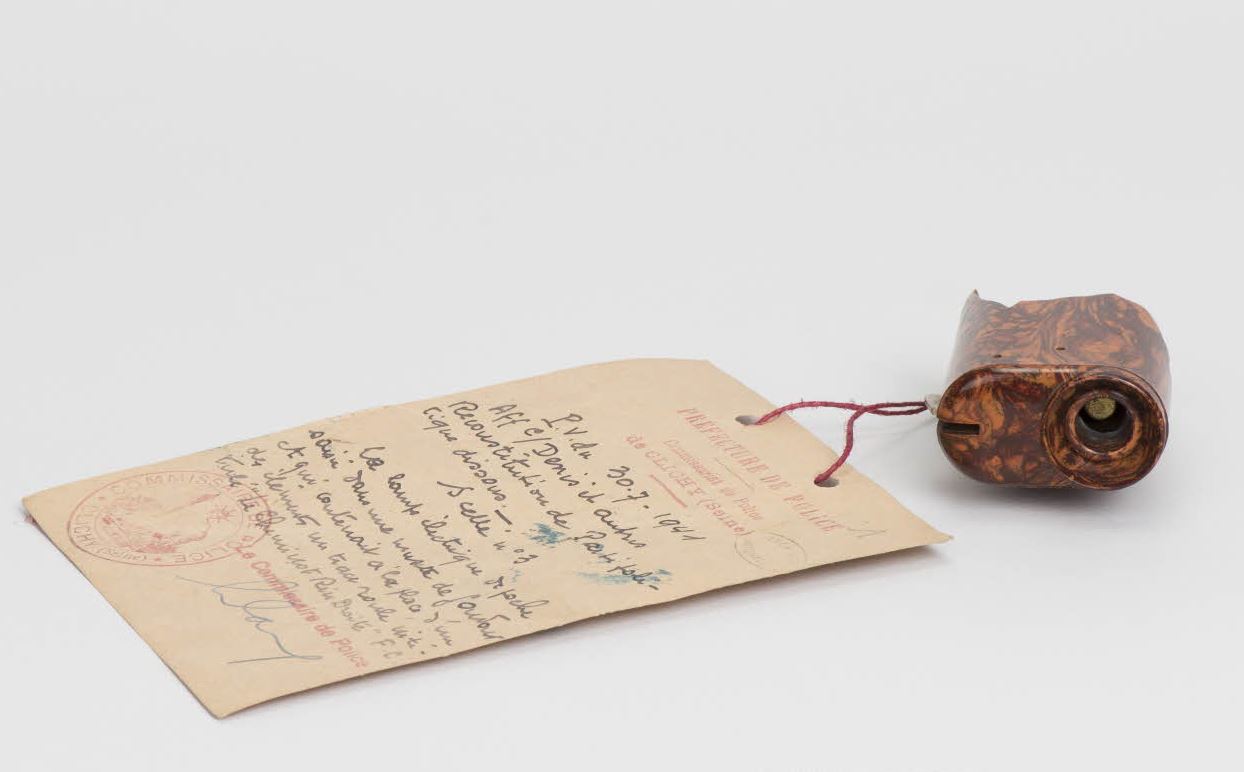 PREFECTURE DE POLICE
Commissariat de Police
de CLICHY (Seine)
1
P.V. du 30.7 1941
Aff c/ Denis et autres
Reconstitution de Parti poli-
tique dissous. -
Scellé n° 3
La lampe électrique de poche
saisie dans une musette de
et qui contenait à la place d'un
des éléments un tract roulé inti-
tulé
COMMISSARIAT DE POLICE
CLICHY (Seine)
Le Commissaire de Police